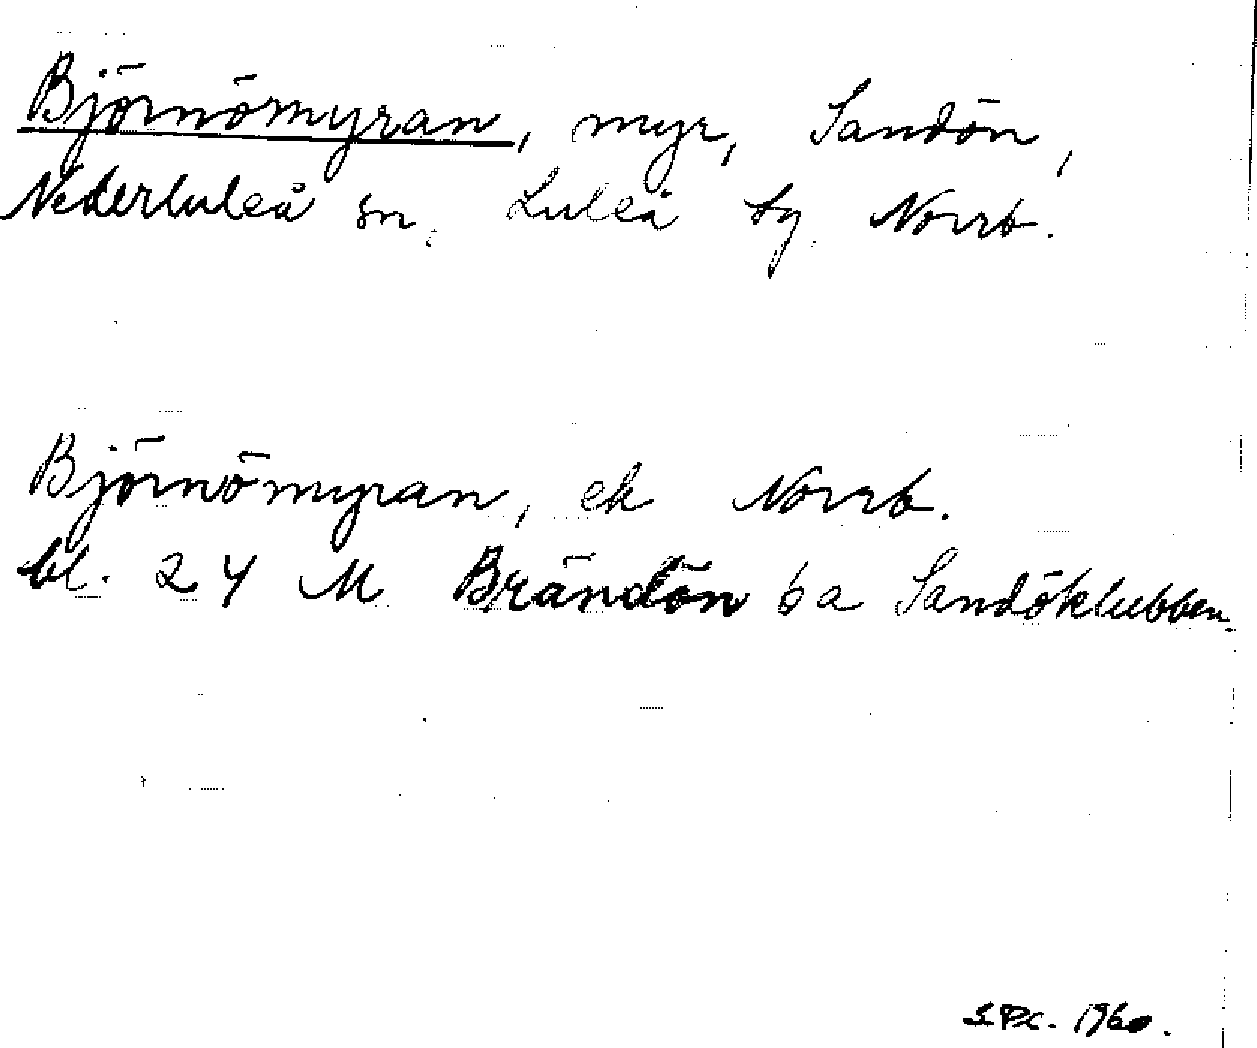 Björnömyran, myr, Sandön,
Nederluleå sn. Luleå tg. Norrb.
Björnömyran, ek Norrb.
bl. 24 M Brändön 6 a Sandöklubben.
1960.